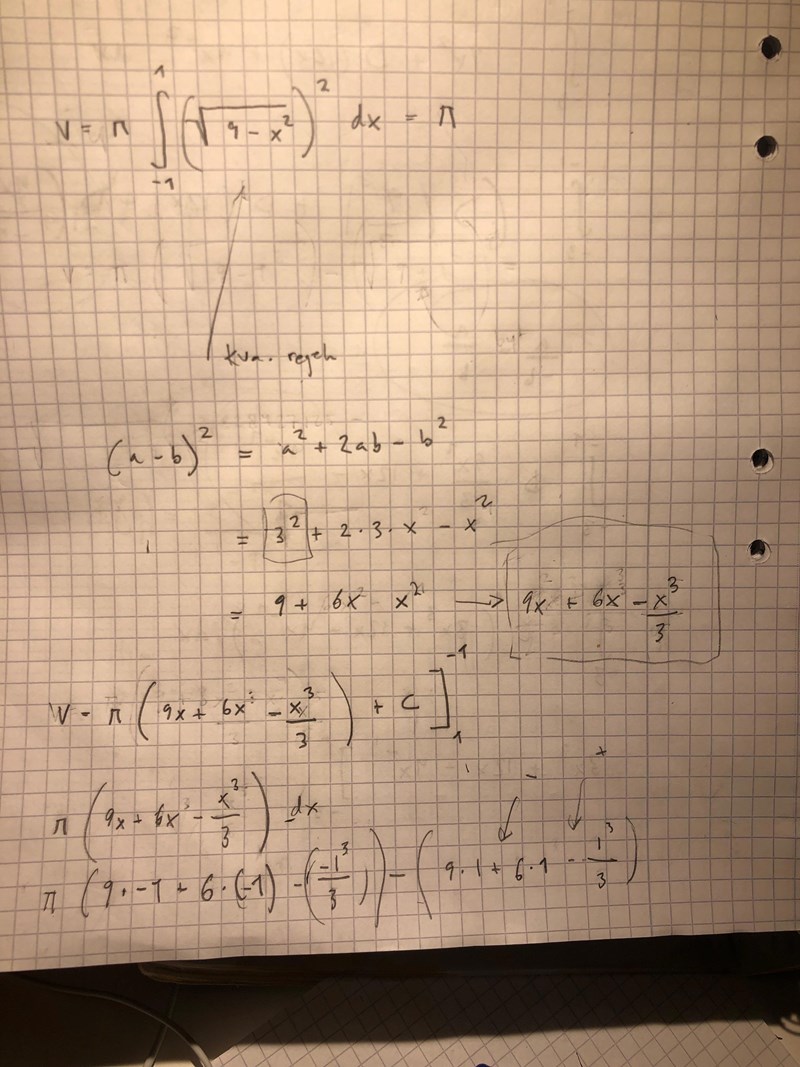 V = π ∫₋₁¹ (√(9 - x²))² dx = π
kva. regeln
(a - b)² = a² + 2ab - b²
= 3² + 2 · 3 · x - x²
= 9 + 6x x² → 9x + 6x - x³/3
V = π (9x + 6x - x³/3) + C ]₁⁻¹
π (9x + 6x - x³/3) dx
- +
π (9 · -1 + 6 · (-1) - (-1³/3)) - (9 · 1 + 6 · 1 - 1³/3)